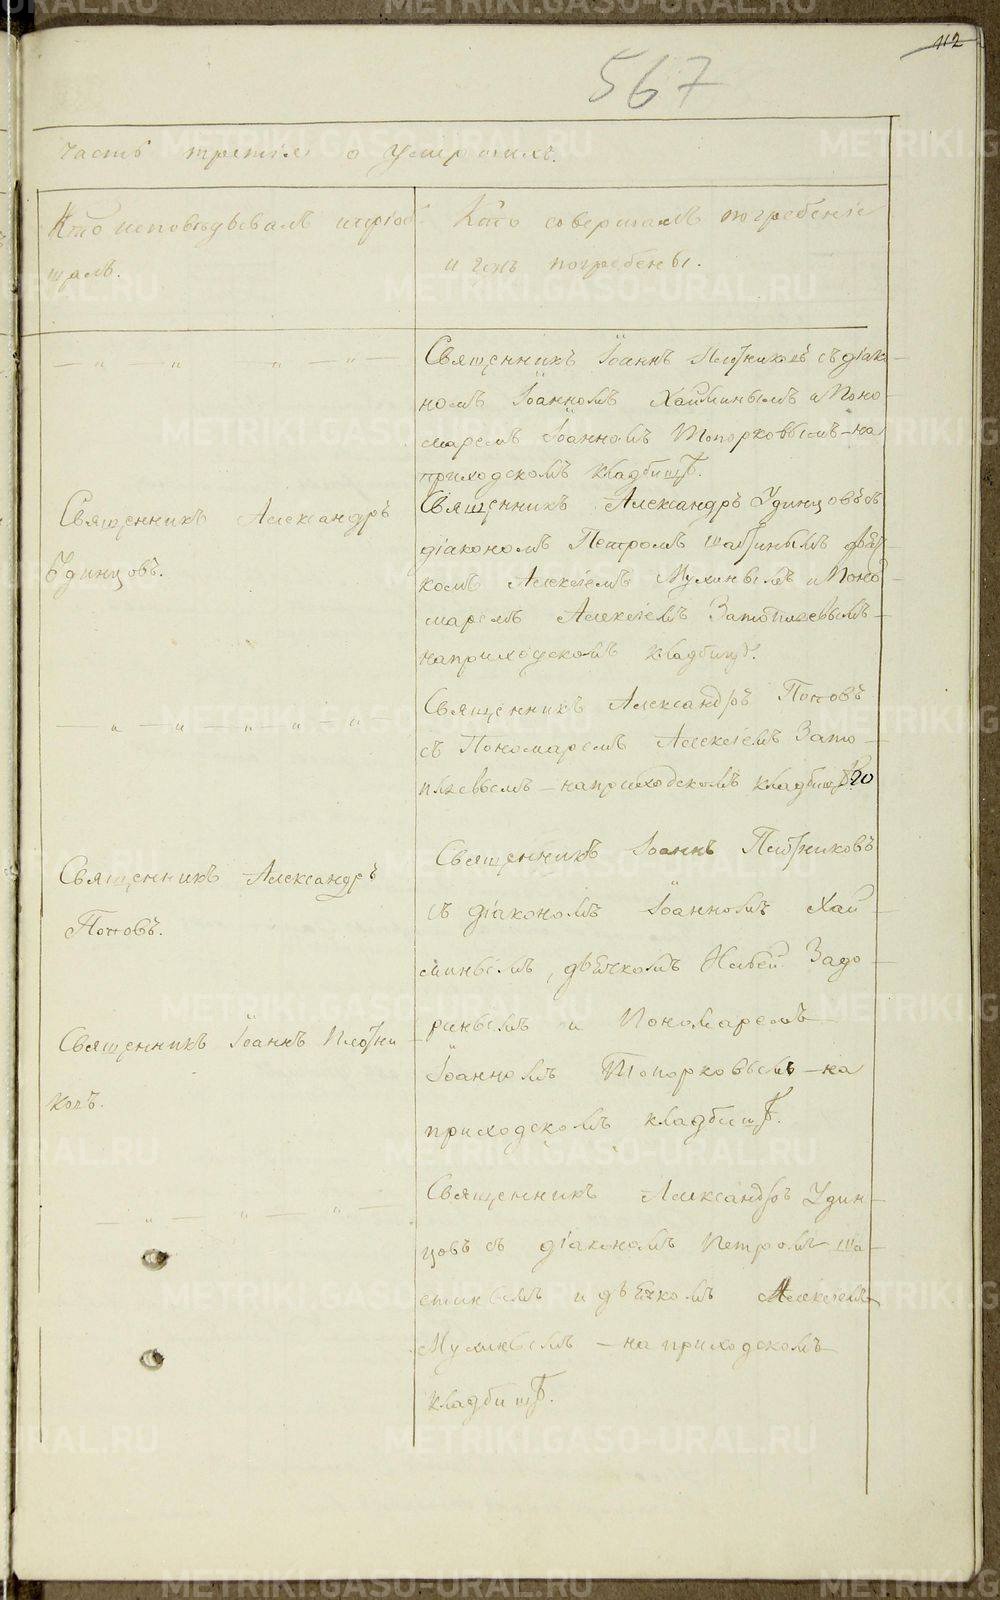 112
567
Часть третья о умершихъ.
Кто исповѣдывалъ и пріоб-
щалъ.
Кто совершалъ погребеніе
и гдѣ погребены.
Священникъ Іоаннъ Плотниковъ съ діако-
номъ Іоанномъ Хайминымъ и Поно-
маремъ Іоанномъ Топорковымъ – на
приходскомъ кладбищѣ.
Священникъ Александръ
Удинцовъ.
Священникъ Александръ Удинцовъ съ
діакономъ Петромъ Шастинымъ дьяч-
комъ Алексіемъ Мухинымъ и Поно-
маремъ Алексіемъ Затопляевымъ –
на приходскомъ кладбищѣ.
Священникъ Александръ Поповъ
съ Пономаремъ Алексіемъ Зато-
пляевымъ – на приходскомъ кладбищѣ 20
Священникъ Александръ
Поповъ.
Священникъ Іоаннъ Плотни-
ковъ.
Священникъ Іоаннъ Плотниковъ
съ діакономъ Іоанномъ Хай-
минымъ, дьячкомъ Задо-
ринымъ и Пономаремъ
Іоанномъ Топорковымъ – на
приходскомъ кладбищѣ.
Священникъ Александръ Удин-
цовъ съ діакономъ Петромъ Ша-
стинымъ и дьячкомъ Алексіемъ
Мухинымъ – на приходскомъ
кладбищѣ.
METRIKI.GASO-URAL.RU